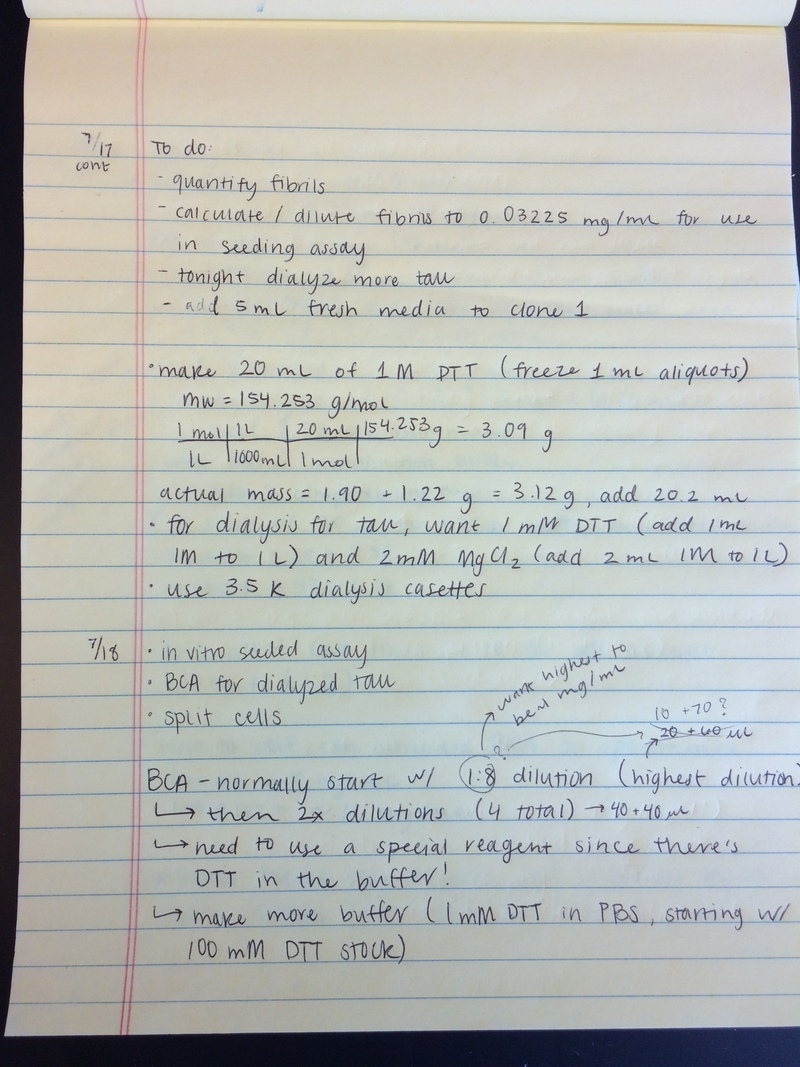 7/17
cont
To do:
- quantify fibrils
- calculate / dilute fibrils to 0.03225 mg/mL for use
in seeding assay
- tonight dialyze more tau
- add 5 mL fresh media to clone 1
• make 20 mL of 1 M DTT (freeze 1 mL aliquots)
mw = 154.253 g/mol
1 mol | 1L | 20 mL | 154.253g = 3.09 g
1L | 1000 mL | 1 mol |
actual mass = 1.90 + 1.22 g = 3.12 g, add 20.2 mL
• for dialysis for tau, want 1 mM DTT (add 1 mL
1M to 1 L) and 2 mM MgCl₂ (add 2 mL 1M to 1L)
• use 3.5 K dialysis casettes
7/18
• in vitro seeded assay
• BCA for dialyzed tau
• split cells
want highest to
be ~1 mg/mL
10 + 70 ?
20 + 60 uL
?
BCA - normally start w/ 1:8 dilution (highest dilution)
↳ then 2x dilutions (4 total) → 40 + 40 uL
↳ need to use a special reagent since there's
DTT in the buffer!
↳ make more buffer (1 mM DTT in PBS, starting w/
100 mM DTT stock)